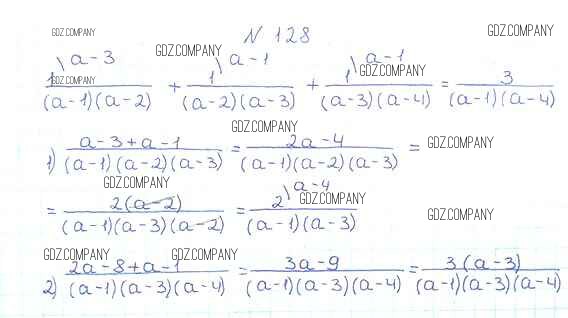 GDZ.COMPANY № 128 GDZ.COMPANY
GDZ.COMPANY
1\a-3/((a-1)(a-2)) + 1\a-1/((a-2)(a-3)) + 1\a-1/((a-3)(a-4)) = 3/((a-1)(a-4))
GDZ.COMPANY GDZ.COMPANY
GDZ.COMPANY
1) (a-3+a-1)/((a-1)(a-2)(a-3)) = (2a-4)/((a-1)(a-2)(a-3)) =
GDZ.COMPANY
GDZ.COMPANY
= 2(a-2)/((a-1)(a-3)(a-2)) = 2\a-4/((a-1)(a-3))
GDZ.COMPANY GDZ.COMPANY
GDZ.COMPANY GDZ.COMPANY
2) (2a-8+a-1)/((a-1)(a-3)(a-4)) = (3a-9)/((a-1)(a-3)(a-4)) = 3(a-3)/((a-1)(a-3)(a-4))